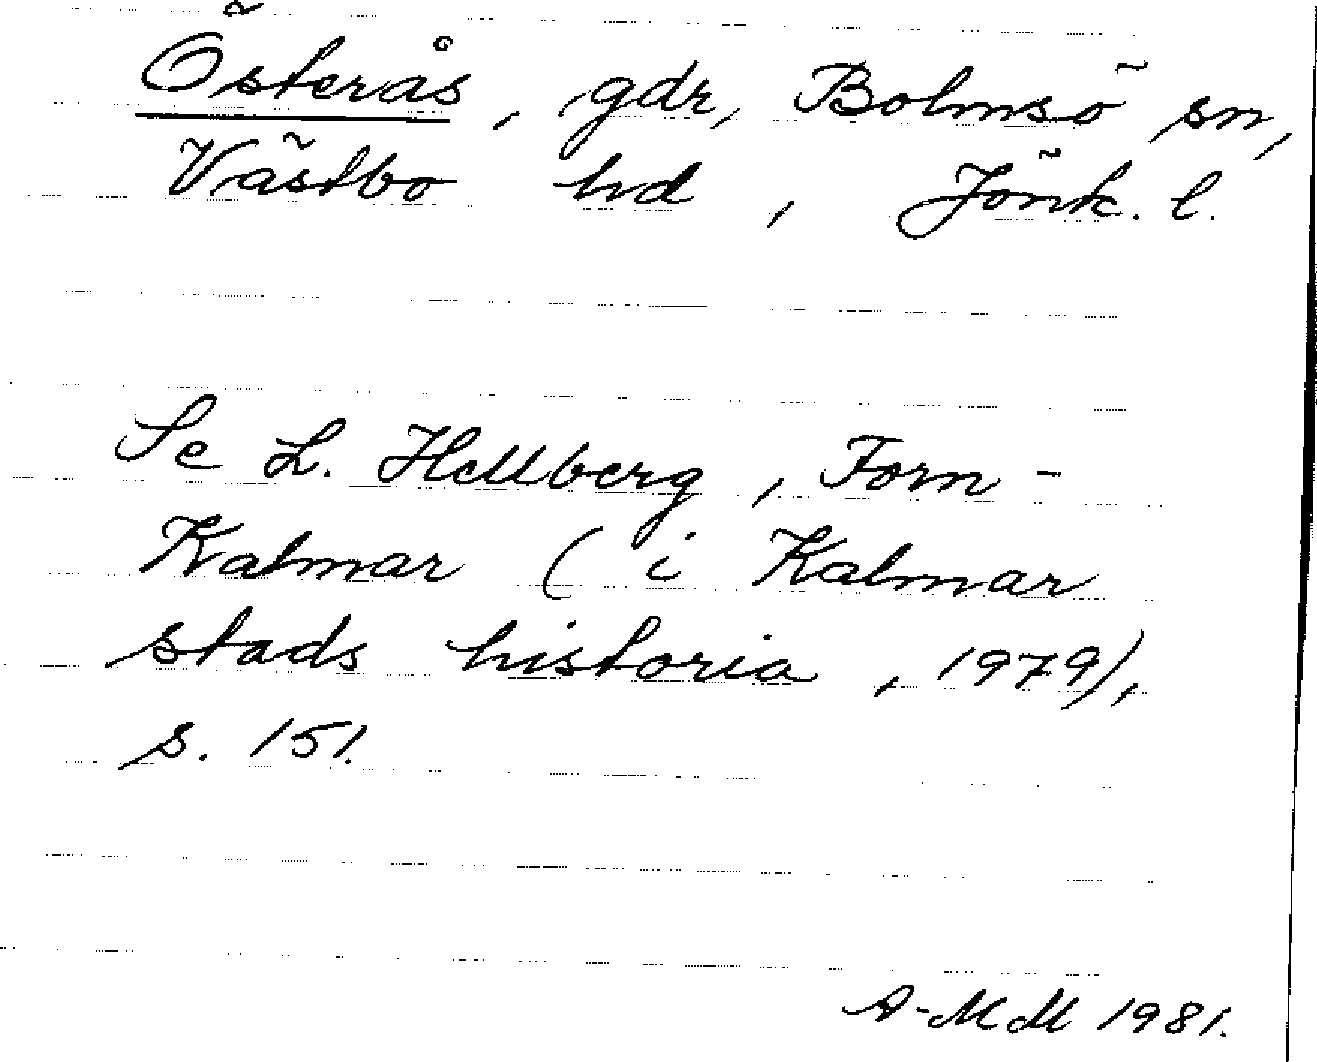 Österås, gdr, Bolmsö sn,
Västbo hd, Jönk. l.
Se L. Hellberg, Forn-
Kalmar (i Kalmar
stads historia, 1979),
s. 151.
A-MM 1981.